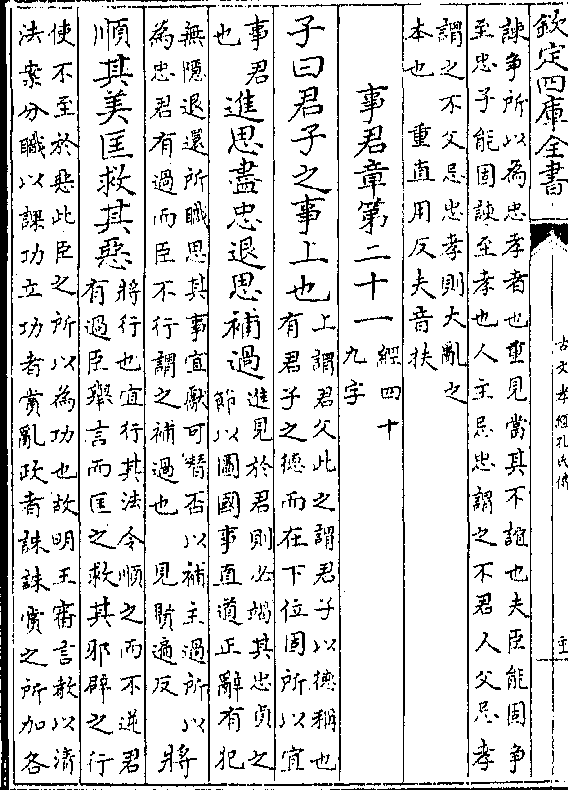 欽定四庫全書
古文孝經孔氏傳
諌争所以為忠孝者也重見當其不誼也夫臣能固争
至忠子能固諌至孝也人主忌忠謂之不君人父忌孝
謂之不父忌忠孝則大亂之
本也 重直用反夫音扶
事君章第二十一 經四十
九字
子曰君子之事上也 上謂君父此之謂君子以德稱也
有君子之德而在下位固所以宜
事君
也
進思盡忠退思補過 進見於君則必竭其忠貞之
節以圖國事直道正辭有犯
無隠退還所職思其事宜獻可替否以補主過所以
為忠君有過而臣不行謂之補過也 見賢遍反
將
順其美匡救其惡 將行也宜行其法令順之而不逆君
有過臣舉言而匡之救其邪辟之行
使不至於惡此臣之所以為功也故明王審言教以清
法案分職以課功立功者賞亂政者誅誅賞之所加各